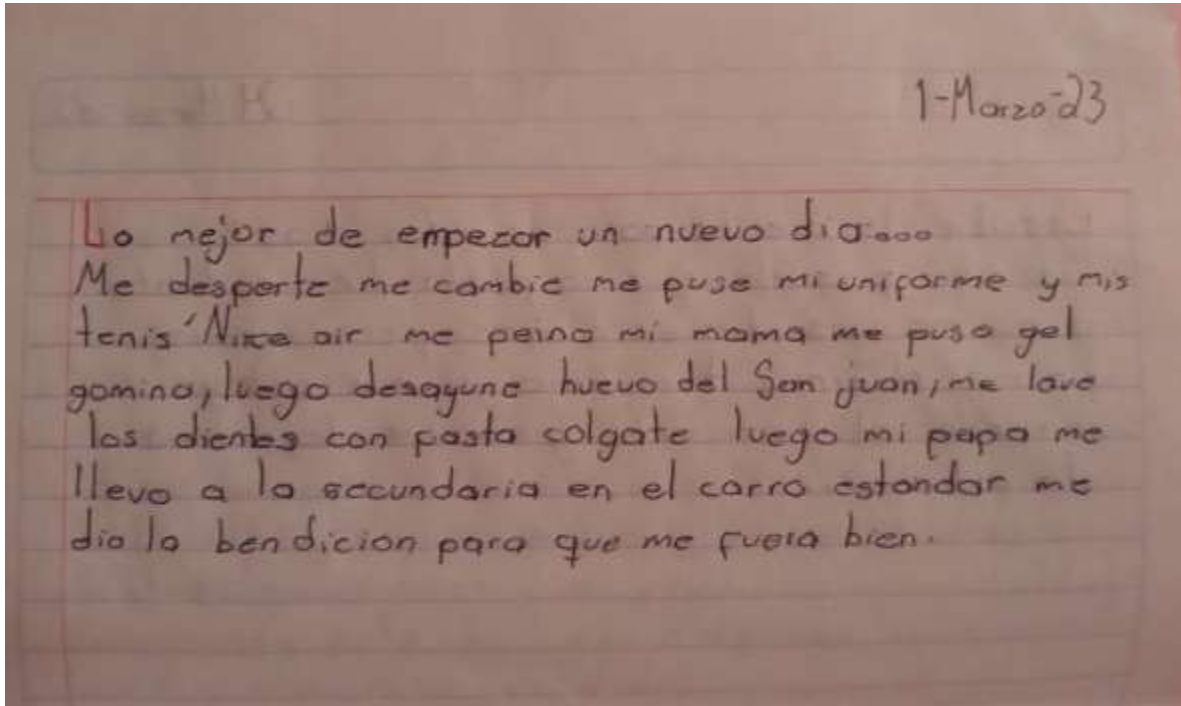 1-Marzo-23
Lo mejor de empezar un nuevo dia....
Me desperte me cambie me puse mi uniforme y mis
tenis 'Nike air me peino mi mama me puso gel
gomina, luego desayune huevo del San juan, me lave
los dientes con pasta colgate luego mi papa me
llevo a la secundaria en el carro estandar me
dio la bendicion para que me fuera bien.